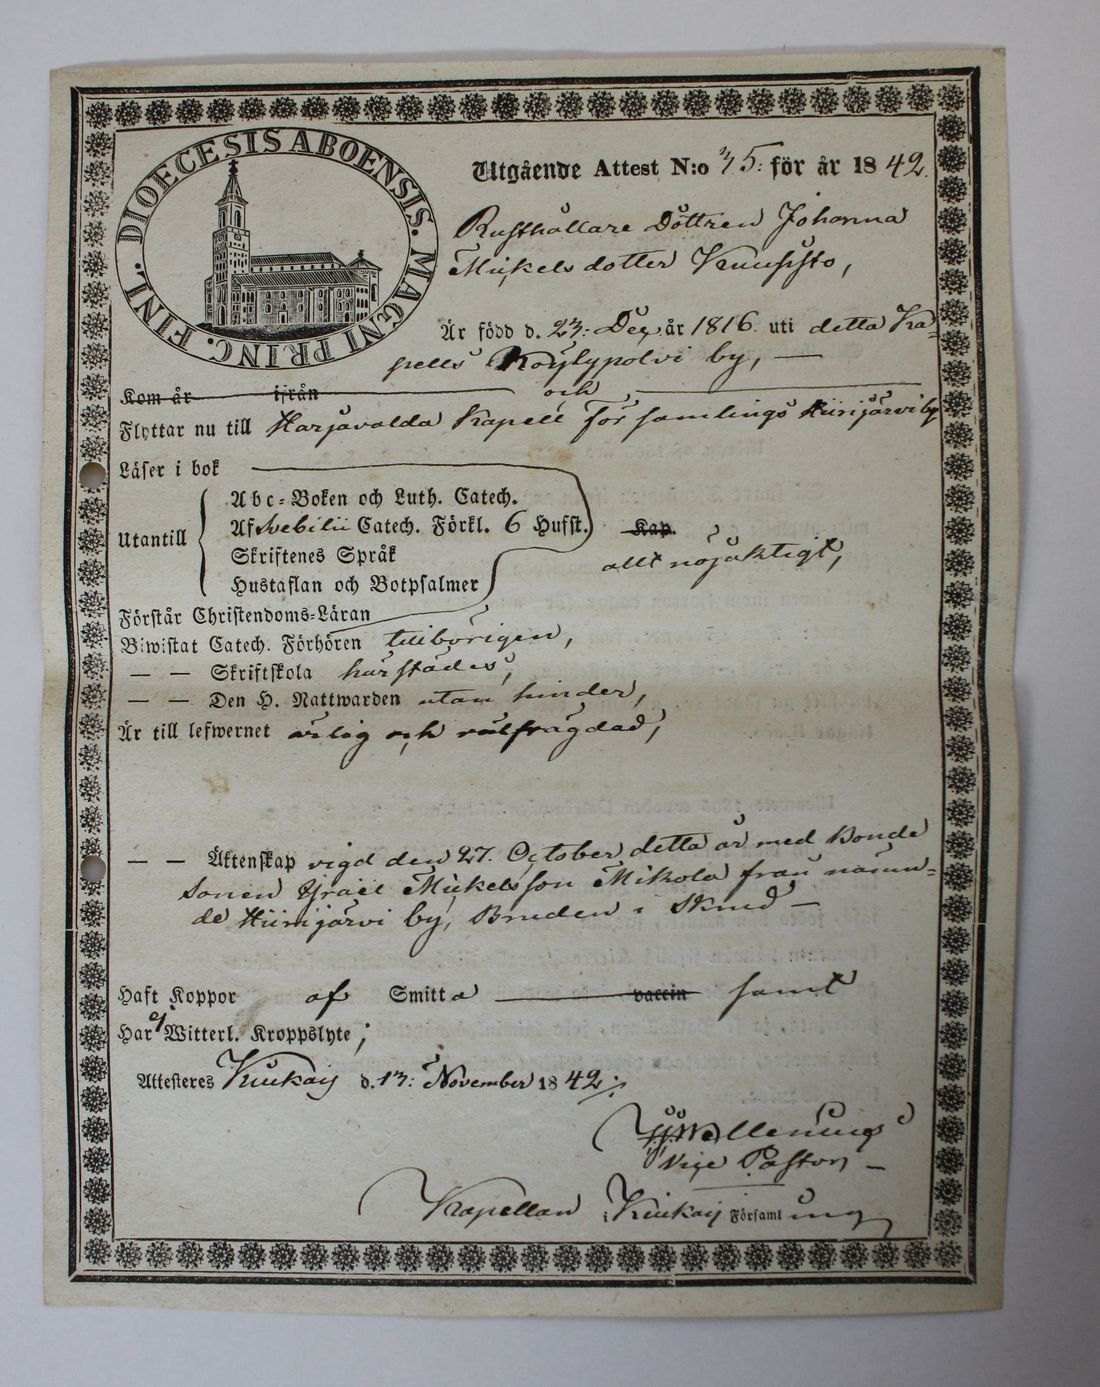 DIOECESIS ABOENSIS. MAGNI PRINC. FINL.
Utgående Attest N:o 35: för år 1842.
Rusthållare Dottren Johanna
Mickelsdotter
Är född d. 23: Dec. år 1816. uti detta Ka-
pells Köylypolvi by, —
Kom år ifrån och
Flyttar nu till Harjavalda Kapell församlings Hiirijärvi by
Läser i bok
Utantill
Abc-Boken och Luth. Catech.
Af Svebilii Catech. Förkl. 6 Hufst. Kap.
Skriftenes Språk
allt nöjaktigt,
Hustaflan och Botpsalmer
Förstår Christendoms-Läran
Biwistat Catech. Förhören tillbörigen,
— — Skriftskola härstädes,
— — Den H. Nattwarden utan hinder,
Är till lefwernet ärlig och välfrägdad,
— — Äktenskap vigd den 27. October detta år med Bonde
sonen Israel Mickelsson Mikola från nämn-
de Hiirijärvi by, Bruden i Skrud —
Haft Koppor af Smitta vaccin samt
Har ej Witterl. Kroppslyte;
Attesteres Kiukais d. 13: November 1842
Vice Pastor,
Kapellan i Kiukais Församlung